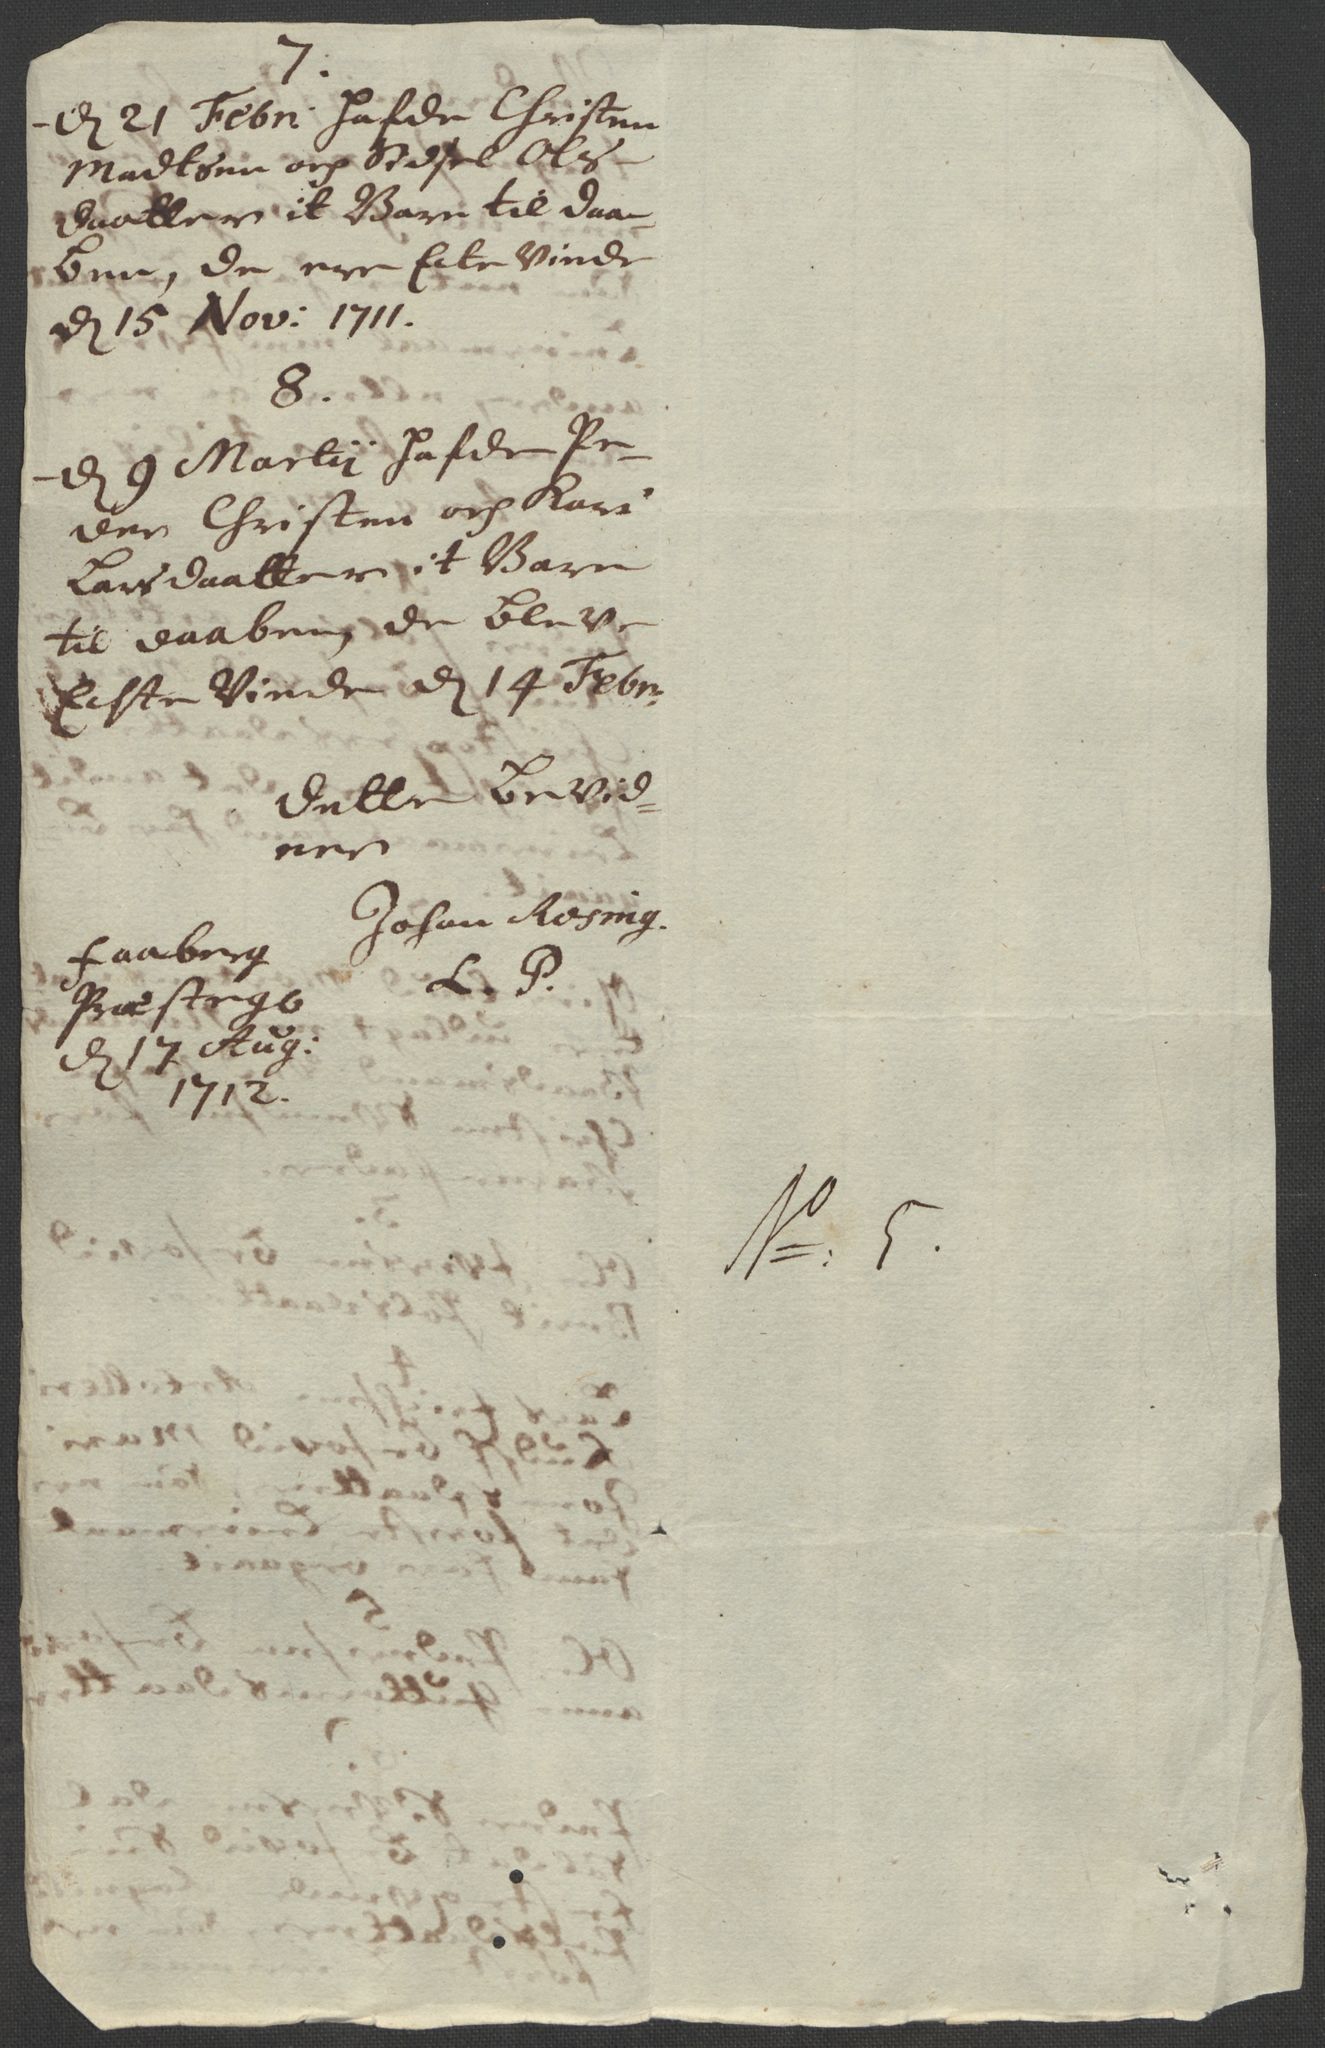 7.
- dn 21 Febri hafde Christen
Madtsen och Sidsel Ols-
daatter it Barn til daa-
ben, de ere Ecte viede
dn 15 Nov: 1711.
8.
- dn 9 Martij hafde Pe-
der Christen och Kari
Larsdaatter it Barn
til daaben, de bleve
Ecte Viede dn 14 Febr.
dette bevid=
ner
Johan Rosing.
L. P.
faaberg
Præstegb
dn 17 Aug:
1712.
No: 5.